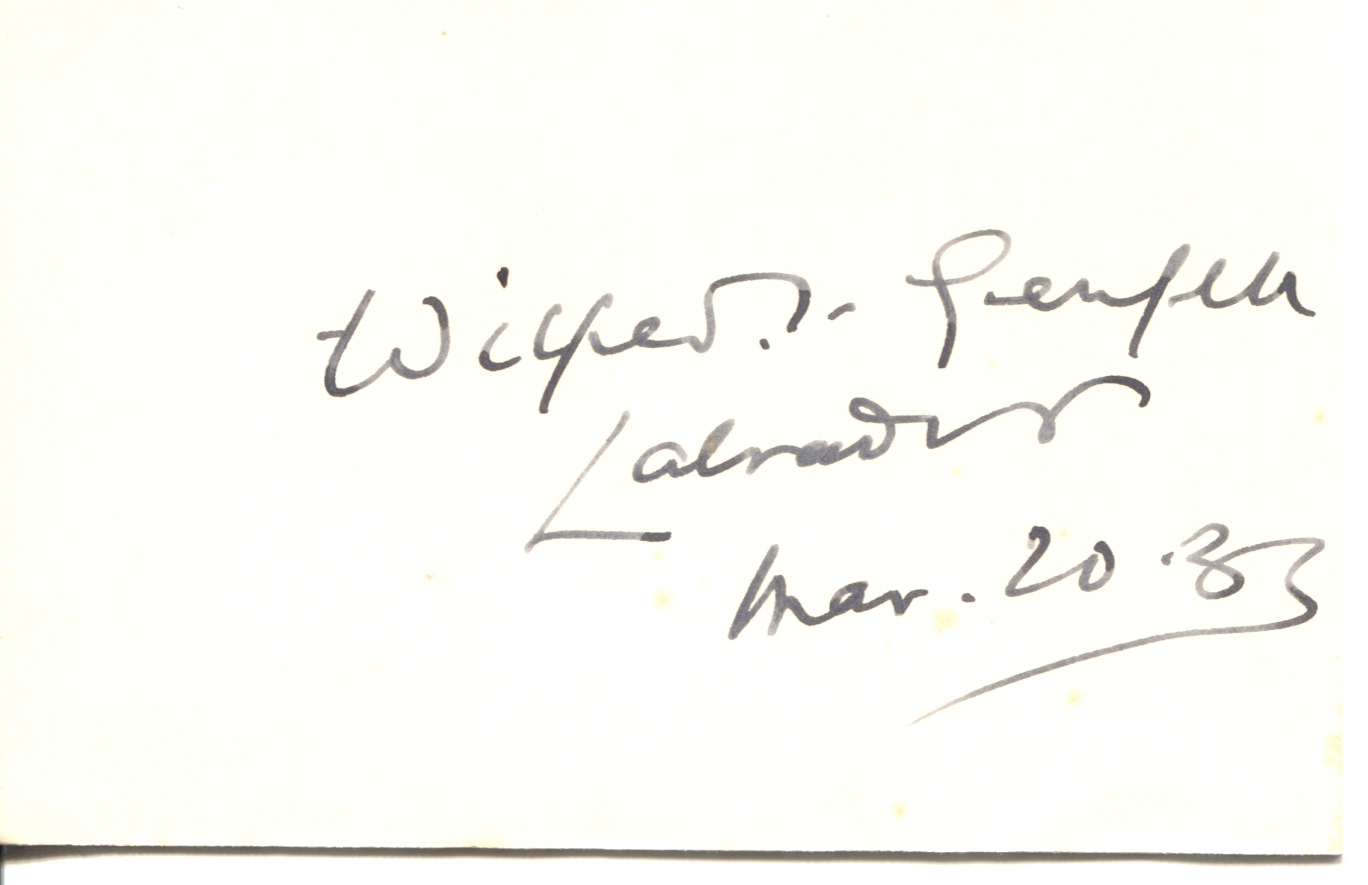 Wilfred. T. Grenfell
Labrador
Mar. 20. 33